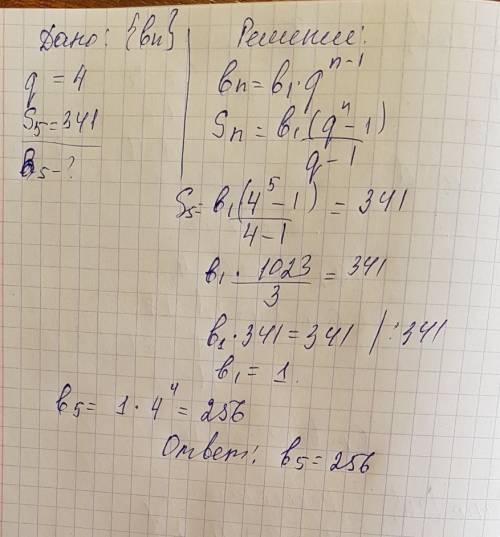 Дано: {bn}
q = 4
S5 = 341
b5 - ?
Решение:
bn = b1 · q^(n-1)
Sn = b1 (q^n - 1) / (q - 1)
S5 = b1 (4^5 - 1) / (4 - 1) = 341
b1 · 1023 / 3 = 341
b1 · 341 = 341 / : 341
b1 = 1.
b5 = 1 · 4^4 = 256
Ответ: b5 = 256